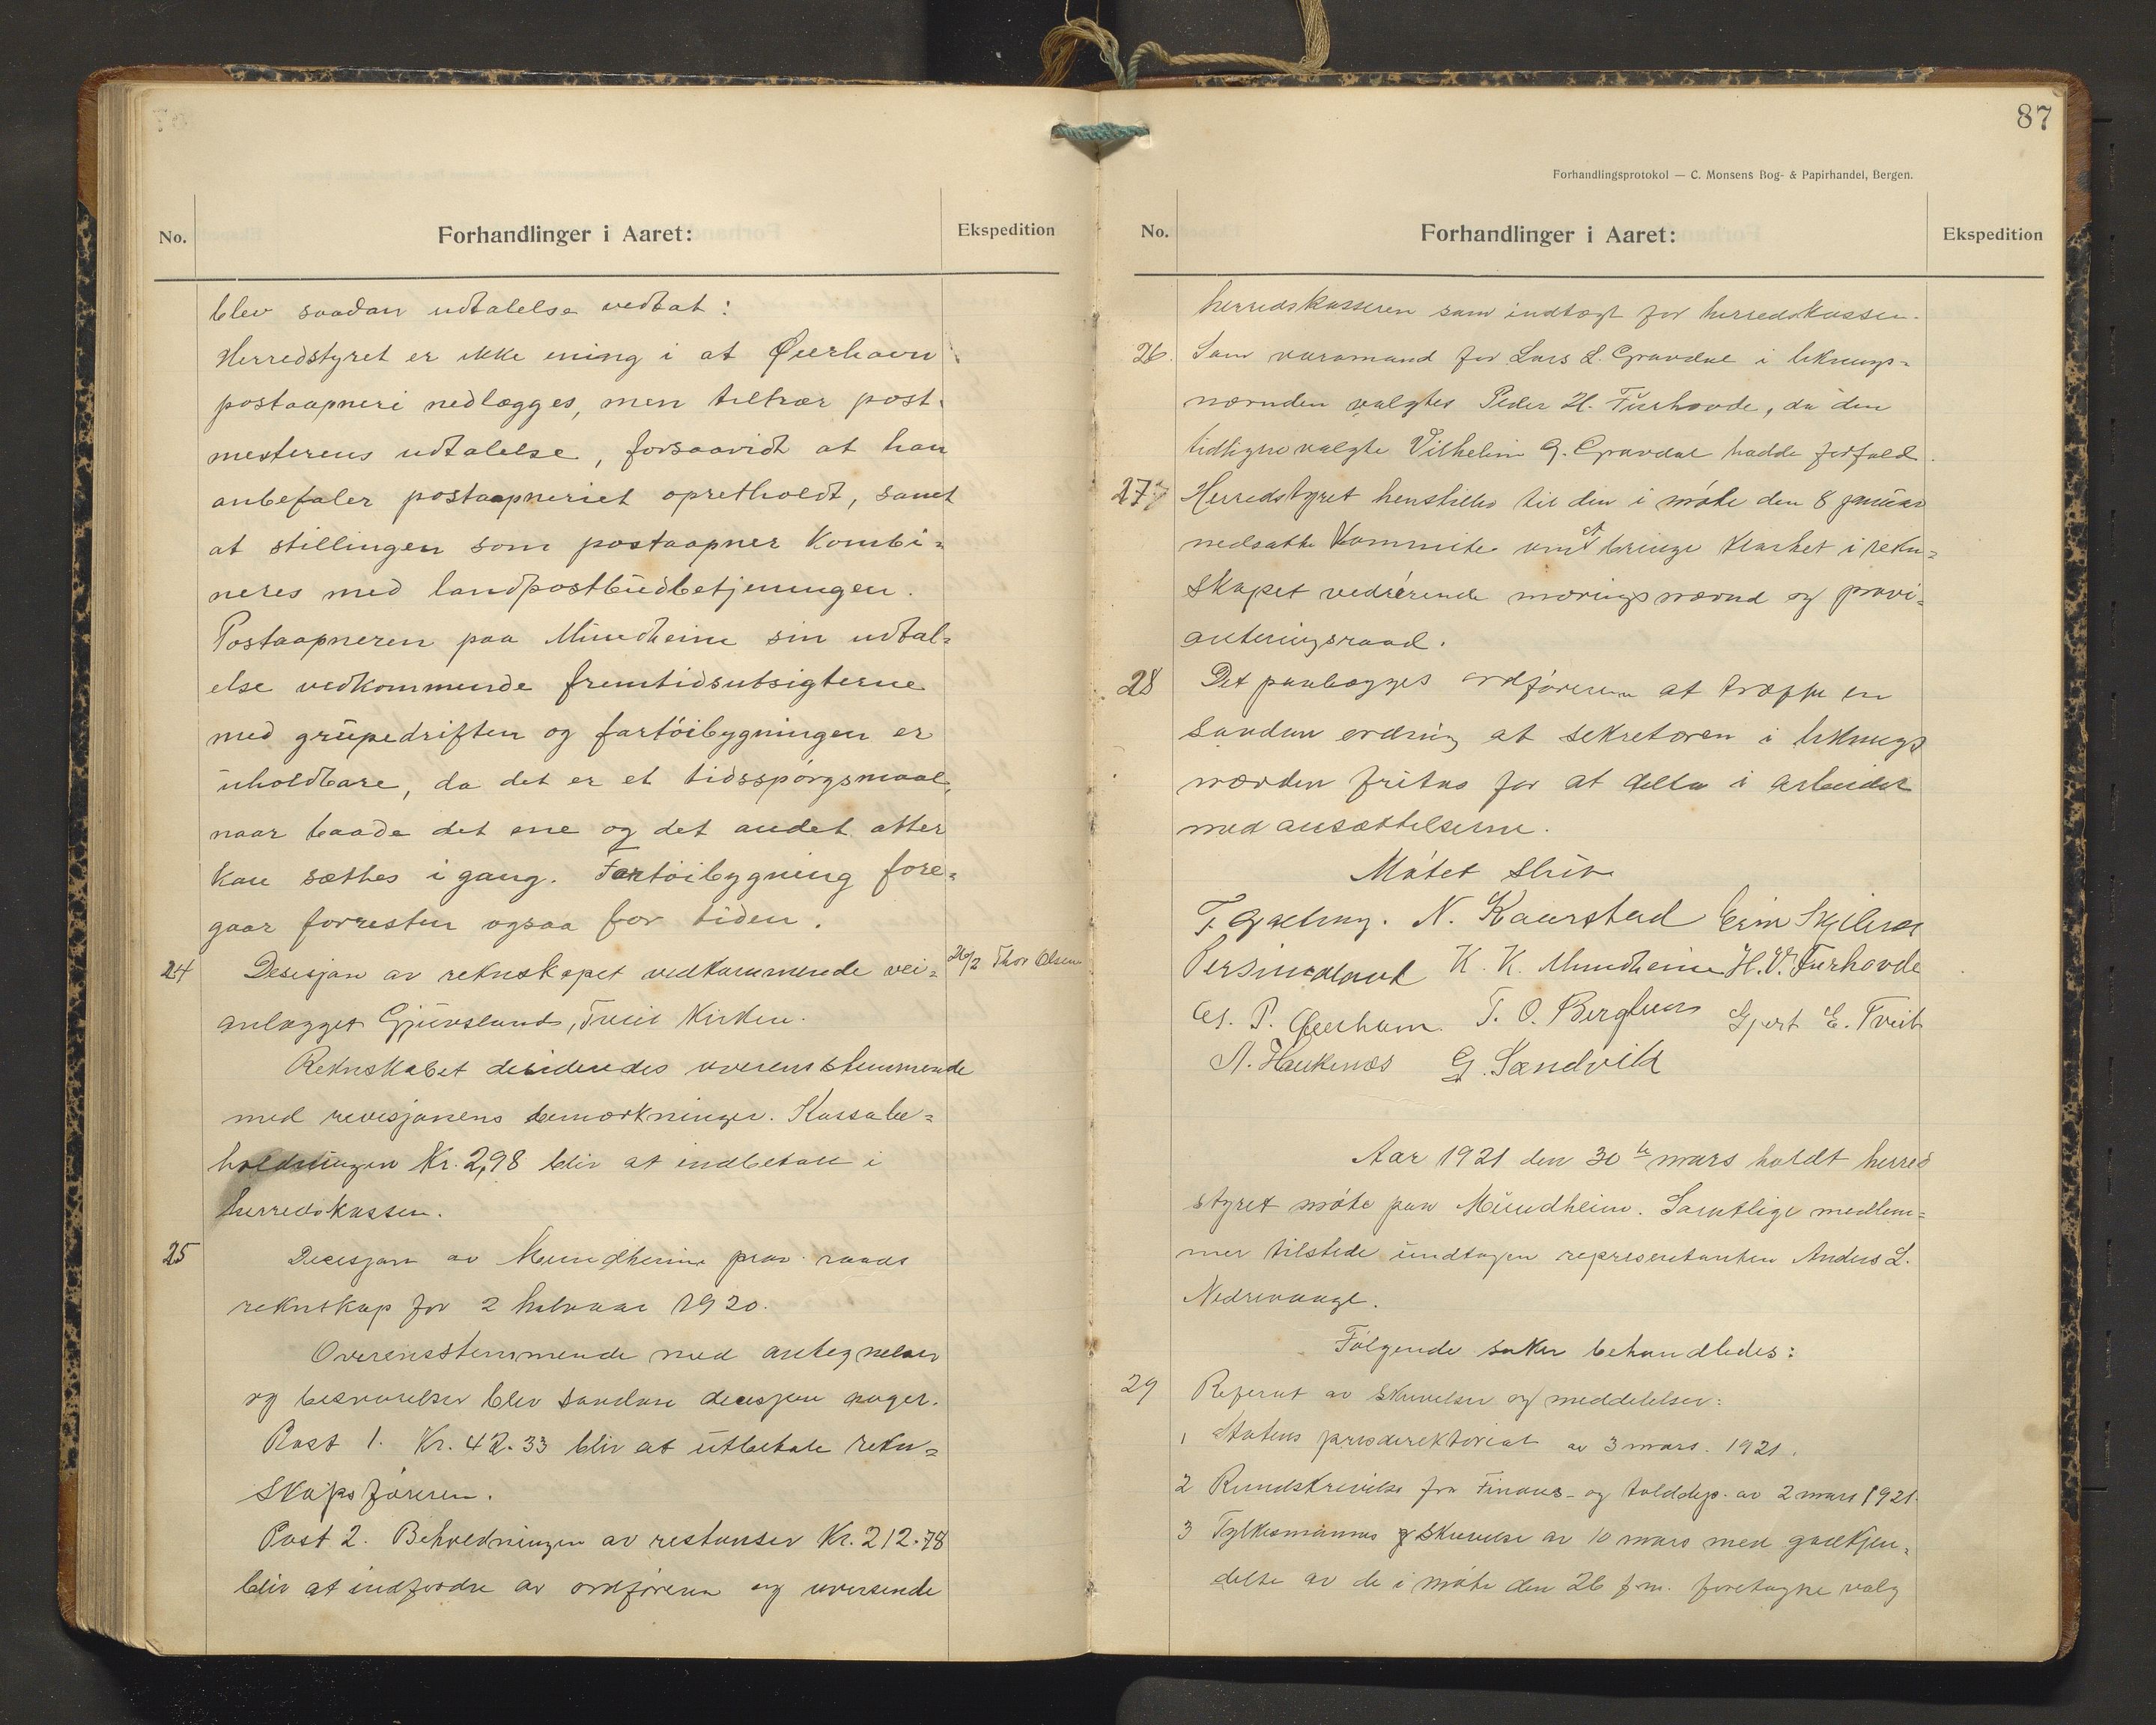 No.
Forhandlinger i Aaret:
Ekspedition
blev saadan udtalelse vedtat:
Herredstyret er ikke ening i at Øierhavn
postaapneri nedlægges, men tiltrær post-
mesterens udtalelse, forsaavidt at han
anbefaler postaapneriet opretholdt, samt
at stillingen som postaapner kombi=
neres med landpostbudbetjeningen.
Postaapneren paa Mundheim sin udtal=
else vedkommende fremtidsutsigterne
med grupedriften og fartöibygningen er
uholdbare, da det er et tidsspörgsmaal,
naar baade det ene og det andet atter
kan sættes i gang. Fartöibygning fore=
gaar forresten ogsaa for tiden.
24 Desisjon av reknskapet vedkommende vei= 26/2 Thor Olsen
anlægget Gjuvsland, Kirken.
Reknskabet desideredes overensstemmende
med revisjonens bemærkninger. Kassabe=
holdningen Kr. 2,98 bliv at indbetale i
herredskassen.
25 Decisjon av Mundheim prov. raads
reknskap for 2 halvaar 1920.
Overensstemmende med antegnelser
og besvarelser blev saadan decisjon avget.
Post 1. Kr. 42.33 bliv at utbetale rekn=
skapsföreren.
Post 2. Beholdningen av restanser Kr. 212.78
bliv at indfordre av ordföreren og oversende
87
Forhandlingsprotokol — C. Monsens Bog- & Papirhandel, Bergen.
No.
Forhandlinger i Aaret:
Ekspedition
herredskasseren som indtægt for herredskassen.
26. Som varamand for Lars L. Gravdal i liknings=
nævnden valgtes Peder H. Furhovde, da den
tidligere valgte Vilhelm G. Gravdal hadde forfald.
27 Herredstyret henstiller til den i möte den 8 januar
nedsatte Kommite om at bringe klarhet i rekn=
skapet vedrörende næringsnævnd og provi=
anteringsraad.
28 Det paalægges ordföreren at træffe en
saadan ordning at sekretæren i liknings
nævnden fritas for at delta i arbeidet
med ansættelserne.
Mötet slut
N. Kaurstad
K. K. Mundheim H. V. Furhovde
P. T. O. Gjert E. Tveit
A. Haukenæs G. Sandvik
Aar 1921 den 30te mars holdt herred
styret möte paa Mundheim. Samtlige medlem=
mer tilstede undtagen representanten Anders L.
Nedrevaage.
Fölgende saker behandledes:
29 Referat av skrivelser og meddelelser:
1 Statens prisdirektoriat av 3 mars. 1921.
2 Rundskrivelse fra Finans- og tolddep. av 2 mars 1921.
3 Fylkesmannens skrivelse av 10 mars med godkjen=
delse av de i möte den 26 f.m. foretagne valg